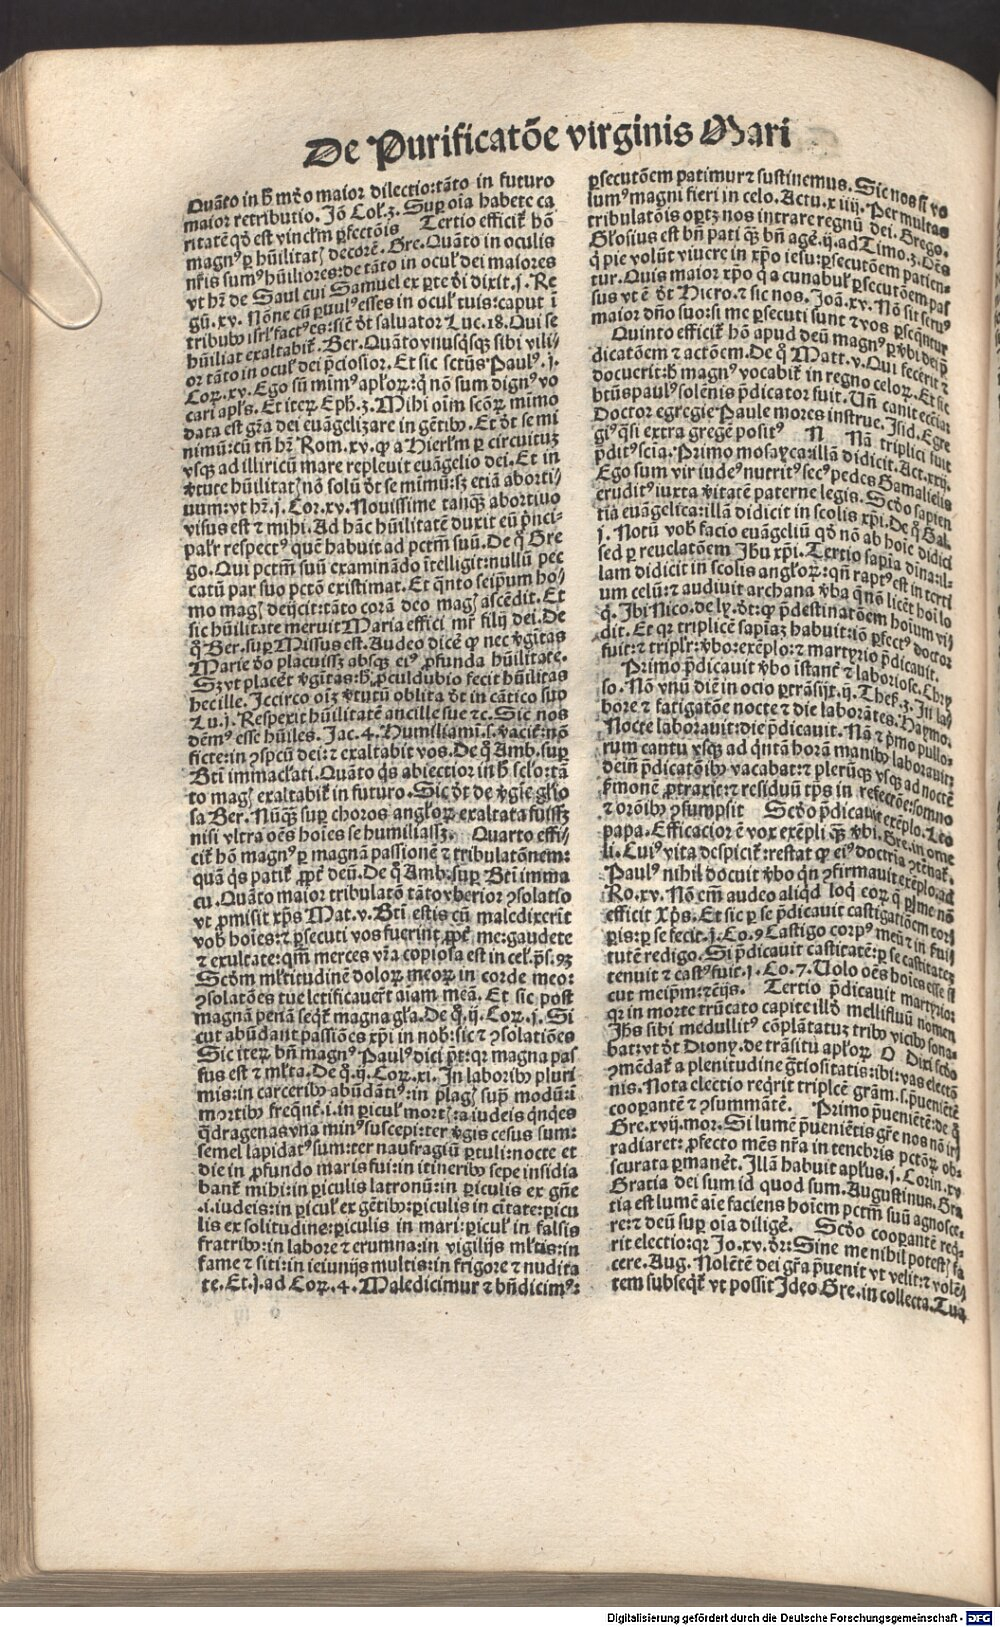 De Purificatõe virginis Mari
Quãto in h̃ mũdo maior dilectio: tãto in futuro
maior retributio. Jõ Col. 3. Sup oĩa habete ca
ritatẽ qđ est vincłm pfectõis Tertio efficit hõ
magnꝰ p hũilitatꝭ decorẽ. Gre. Quãto in oculis
nr̃is sumꝰ hũiliores: de tãto in ocul' dei maiores
vt hr̃ de Saul cui Samuel ex pte dñi dixit. j. Re
gũ. xv. Nõne cũ puulꝰ esses in ocul' tuis: caput ĩ
tribubꝰ isrł factꝰ es: sic̃ đt saluator Luc. 18. Qui se
hũiliat exaltabit. Ber. Quãto vnusq̃sq̃ sibi vili⸗
or tãto in ocul' dei p̃ciosior. Et sic sctũs Paulꝰ. j.
Cor. xv. Ego sũ mĩmꝰ apłoꝝ: q̃ nõ sum dignꝰ vo
cari apłs. Et iteꝝ Eph. 3. Mihi oĩm scõꝝ mĩmo
data est gr̃a dei euãgelizare in gẽtibꝰ. Et đt se mi
nimũ: cũ tñ hr̃. Rom. xv. ꝙ a Hierłm p circuituꝫ
vsqꝫ ad illiricũ mare repleuit euãgelio dei. Et in
ṽtute hũilitatꝭ nõ solũ đt se mimũ: sꝫ etiã aborti⸗
uum: vt hr̃. j. Cor. xv. Nouissime tanqꝫ abortiuo
visus est ⁊ mihi. Ad hãc hũilitatẽ duxit eũ p̃nci⸗
palr̃ respectꝰ quẽ habuit ad pctm̃ suũ. De q̃ Gre
go. Qui pctm̃ suũ examinãdo ĩtelligit: nullũ pec
catũ par suo pctõ existimat. Et q̃nto seip̃um ho⸗
mo magꝭ deijcit: tãto corã deo magꝭ ascẽdit. Et
sic hũilitate meruit Maria effici mr̃ filij dei. De
q̃ Ber. sup Missus est. Audeo dicẽ ꝙ nec ṽgĩtas
Marie đo placuissꝫ absqꝫ eiꝰ ꝓfunda hũilitate.
Sꝫ vt placẽt ṽgĩtas: h̃ ꝓculdubio fecit hũilitas
hec ille. Iccirco oĩꝫ ṽtutũ oblita đt in cãtico suo
Lu. j. Respexit hũilitatẽ ancille sue ⁊c. Sic nos
dẽmꝰ esse hũiles. Jac. 4. Humiliami. s. ṽacit̃: nõ
ficte: in ꝯspcũ dei: ⁊ exaltabit vos. De q̃ Amb. sup
Bti immacłati. Quãto q̃s abiectior in h̃ scło: tã
to magꝭ exaltabit in futuro. Sic đt de ṽgĩe glio
sa Ber. Nũqꝫ sup choros angloꝝ exaltata fuissꝫ
nisi vltra oẽs hoĩes se humiliassꝫ. Quarto effi⸗
cit̃ hõ magnꝰ p magnã passionẽ ⁊ tribulatõnem:
quã q̃s patit̃ ꝓpt̃ deũ. De q̃ Amb: sup Bti imma
cu. Quãto maior tribulatõ tãto vberior ꝯsolatio
vt ꝓmisit xp̃s Mat. v. Bti estis cũ maledixerit
vob̃ hoĩes: ⁊ ꝑsecuti vos fuerint ꝓpt̃ me: gaudete
⁊ exultate: qm̃ merces vr̃a copiosa est in cel'. ps. 93
Scdm mltitudinẽ doloꝝ meoꝝ in corde meo:
ꝯsolatões tue letificauert̃ aiam meã. Et sic post
magnã penã seqt̃ magna gl̃a. De q̃. ij. Cor. j. Si
cut abũdant passiões xp̃i in nob̃: sic ⁊ ꝯsolatiões
Sic iteꝝ bñ magnꝰ Paulꝰ dici p̃t: qꝛ magna pas
sus est ⁊ mlta. De q̃. ij. Cor. xi. In laboribꝰ pluri
mis: in carceribꝰ abũdãtiꝰ: in plagꝭ sup̃ modũ: ĩ
mortibꝰ freq̃nt̃. i. in picul' mortꝭ: a iudeis q̃nqes
q̃dragenas vna minꝰ suscepi: ter ṽgis cesus sum:
semel lapidatꝰ sum: ter naufragiũ ptuli: nocte et
die in ꝓfundo maris fui: in itineribꝰ sepe insidia
bant̃ mihi: in piculis latronũ: in piculis ex gñe
.i. iudeis: in picul' ex gẽtibꝰ: piculis in citate: picu
lis ex solitudine: piculis in mari: picul' in falsis
fratribꝰ: in labore ⁊ erumna: in vigilijs mltis: in
fame ⁊ siti: in ieiunijs multis: in frigore ⁊ nudita
te. Et. j. ad Cor. 4. Maledicimur ⁊ bñdicimꝰ:
ꝑsecutõem patimur ⁊ sustinemus. Sic nos si vo
lumꝰ magni fieri in celo. Actu. xiiij. Per multas
tribulatõis oportꝫ nos intrare regnũ dei. Grego.
Głosius est bñ pati qꝫ bñ agẽ. ij. ad Timo. 3. Oẽs
q̃ pie volũt viuere in xp̃o iesu: ꝑsecutõem patien⸗
tur. Quis maior xp̃o q̃ a cunabul' ꝑsecutõem pas
sus vt ẽ đt Hiero. ⁊ sic nos. Joã. xv. Nõ sit seruꝰ
maior dño suo: si me ꝑsecuti sunt ⁊ vos ꝑseq̃ntur
Quinto efficit̃ hõ apud deũ magnꝰ ꝑ ṽbi dei p̃
dicatõem ⁊ actõem. De q̃ Matt. v. Qui fecerit ⁊
docuerit: h̃ magnꝰ vocabit̃ in regno celoꝝ. Et sic
btũs paulꝰ solẽnis p̃dicator fuit. Uñ canit ecclia
Doctor egregie Paule mores instrue. Isid. Egre
giꝰ q̃si extra gregẽ positꝰ N Nã triplici fuit
p̃ditꝰ scia. Primo mosayca: illã didicit. Act. xxij.
Ego sum vir iudeꝰ nutritꝰ secꝰ pedes Gamalielis
eruditꝰ iuxta ṽitatẽ paterne legis. Scđo sapien
tia euãgelica: illã didicit in scolis xp̃i. De q̃ Gal.
j. Notũ vob̃ facio euãgeliũ qđ nõ ab hoĩe didici
sed p reuelatõem Jhu xp̃i. Tertio sapĩa diuina: il⸗
lam didicit in scolis angloꝝ: qñ raptꝰ est in terti
um celũ: ⁊ audiuit archana ṽba q̃ nõ licet hoĩ lo
q̃. Ibi Nico. de ly. đt: ꝙ p̃destinatõem hoĩum vi⸗
dit. Et qꝛ triplicẽ sapiaꝫ habuit: iõ pfectꝰ doctor
fuit: ⁊ triplr̃: ṽbo: exẽplo: ⁊ martyrio p̃dicauit.
Primo p̃dicauit ṽbo istant̃ ⁊ laboriose. Chry
so. Nõ vnũ diẽ in ocio ptrãsijt. ij. Thes. 3. In la⸗
bore ⁊ fatigatõe nocte ⁊ die laborãtes. Haymo.
Nocte laborauit: die p̃dicauit. Nã ⁊ p̃mo pullo⸗
rum cantu vsqꝫ ad q̃ntã horã manibꝰ laborauit:
dein̄ p̃dicatõibꝰ vacabat: ⁊ pleruqꝫ vsqꝫ ad noctẽ
ẜmonẽ ꝓtraxit: ⁊ residuũ tp̃s in refectõe: somno
⁊ orõibꝰ ꝯsumpsit Scđo p̃dicauit exẽplo. Leo
papa. Efficacior ẽ vox exẽpli qꝫ ṽbi. Gre. in ome
li. Cuiꝰ vita despicit̃: restat ꝙ eiꝰ doctria ꝯtẽnat̃.
Paulꝰ nihil docuit ṽbo q̃n ꝯfirmauit exẽplo. ad
Ro. xv. Nõ em̃ audeo aliqđ loq̃ eoꝝ q̃ p me nõ
efficit Xp̃s. Et sic p se p̃dicauit castigatõem corꝑ
poris: p se fecit. j. Co. 9 Castigo corpꝰ meũ ⁊ in ẜui
tutẽ redigo. Si p̃dicauit castitatẽ: p se castitatẽ
tenuit ⁊ castꝰ fuit. j. Co. 7. Uolo oẽs hoĩes esse si
cut meip̃m: ⁊ceijs. Tertio p̃dicauit martyrio:
qꝛ in morte trũcato capite illđ mellifluũ nomen
Jhs sibi medullitꝰ cõplãtatuꝫ tribꝰ vicibꝰ sona⸗
bat: vt đt Diony. de trãsitu apłoꝝ O Dixi scđo
ꝯmẽdat̃ a plenitudine g̃tiositatis: ibi: vas electõ
nis. Nota electio req̃rit triplcẽ grãm. s. p̃ueniẽtẽ
coopantẽ ⁊ ꝯsummãtẽ. Primo p̃ueniẽtẽ: de q̃
Gre. xvij. mor. Si lumẽ p̃ueniẽtis gr̃e nos nõ ir
radiaret: ꝓfecto mẽs nr̃a in tenebris pctõꝝ ob⸗
scurata pmanẽt. Illã habuit apłus. j. Corin. xv
Gratia dei sum id quod sum. Augustinus. Gra
tia est lumẽ aĩe faciens hoĩem pctm̃ suũ agnosce⸗
re: ⁊ deũ sup oĩa diligẽ. Scđo coopantẽ req̃⸗
rit electio: qꝛ Jo. xv. đr: Sine me nihil potestꝭ fa
cere. Aug. Nolẽtẽ dei gr̃a p̃uenit vt velit: ⁊ volẽ⸗
tem subseqt̃ vt possit Ideo Gre. in collecta. Tua
Digitalisierung gefördert durch die Deutsche Forschungsgemeinschaft - DFG